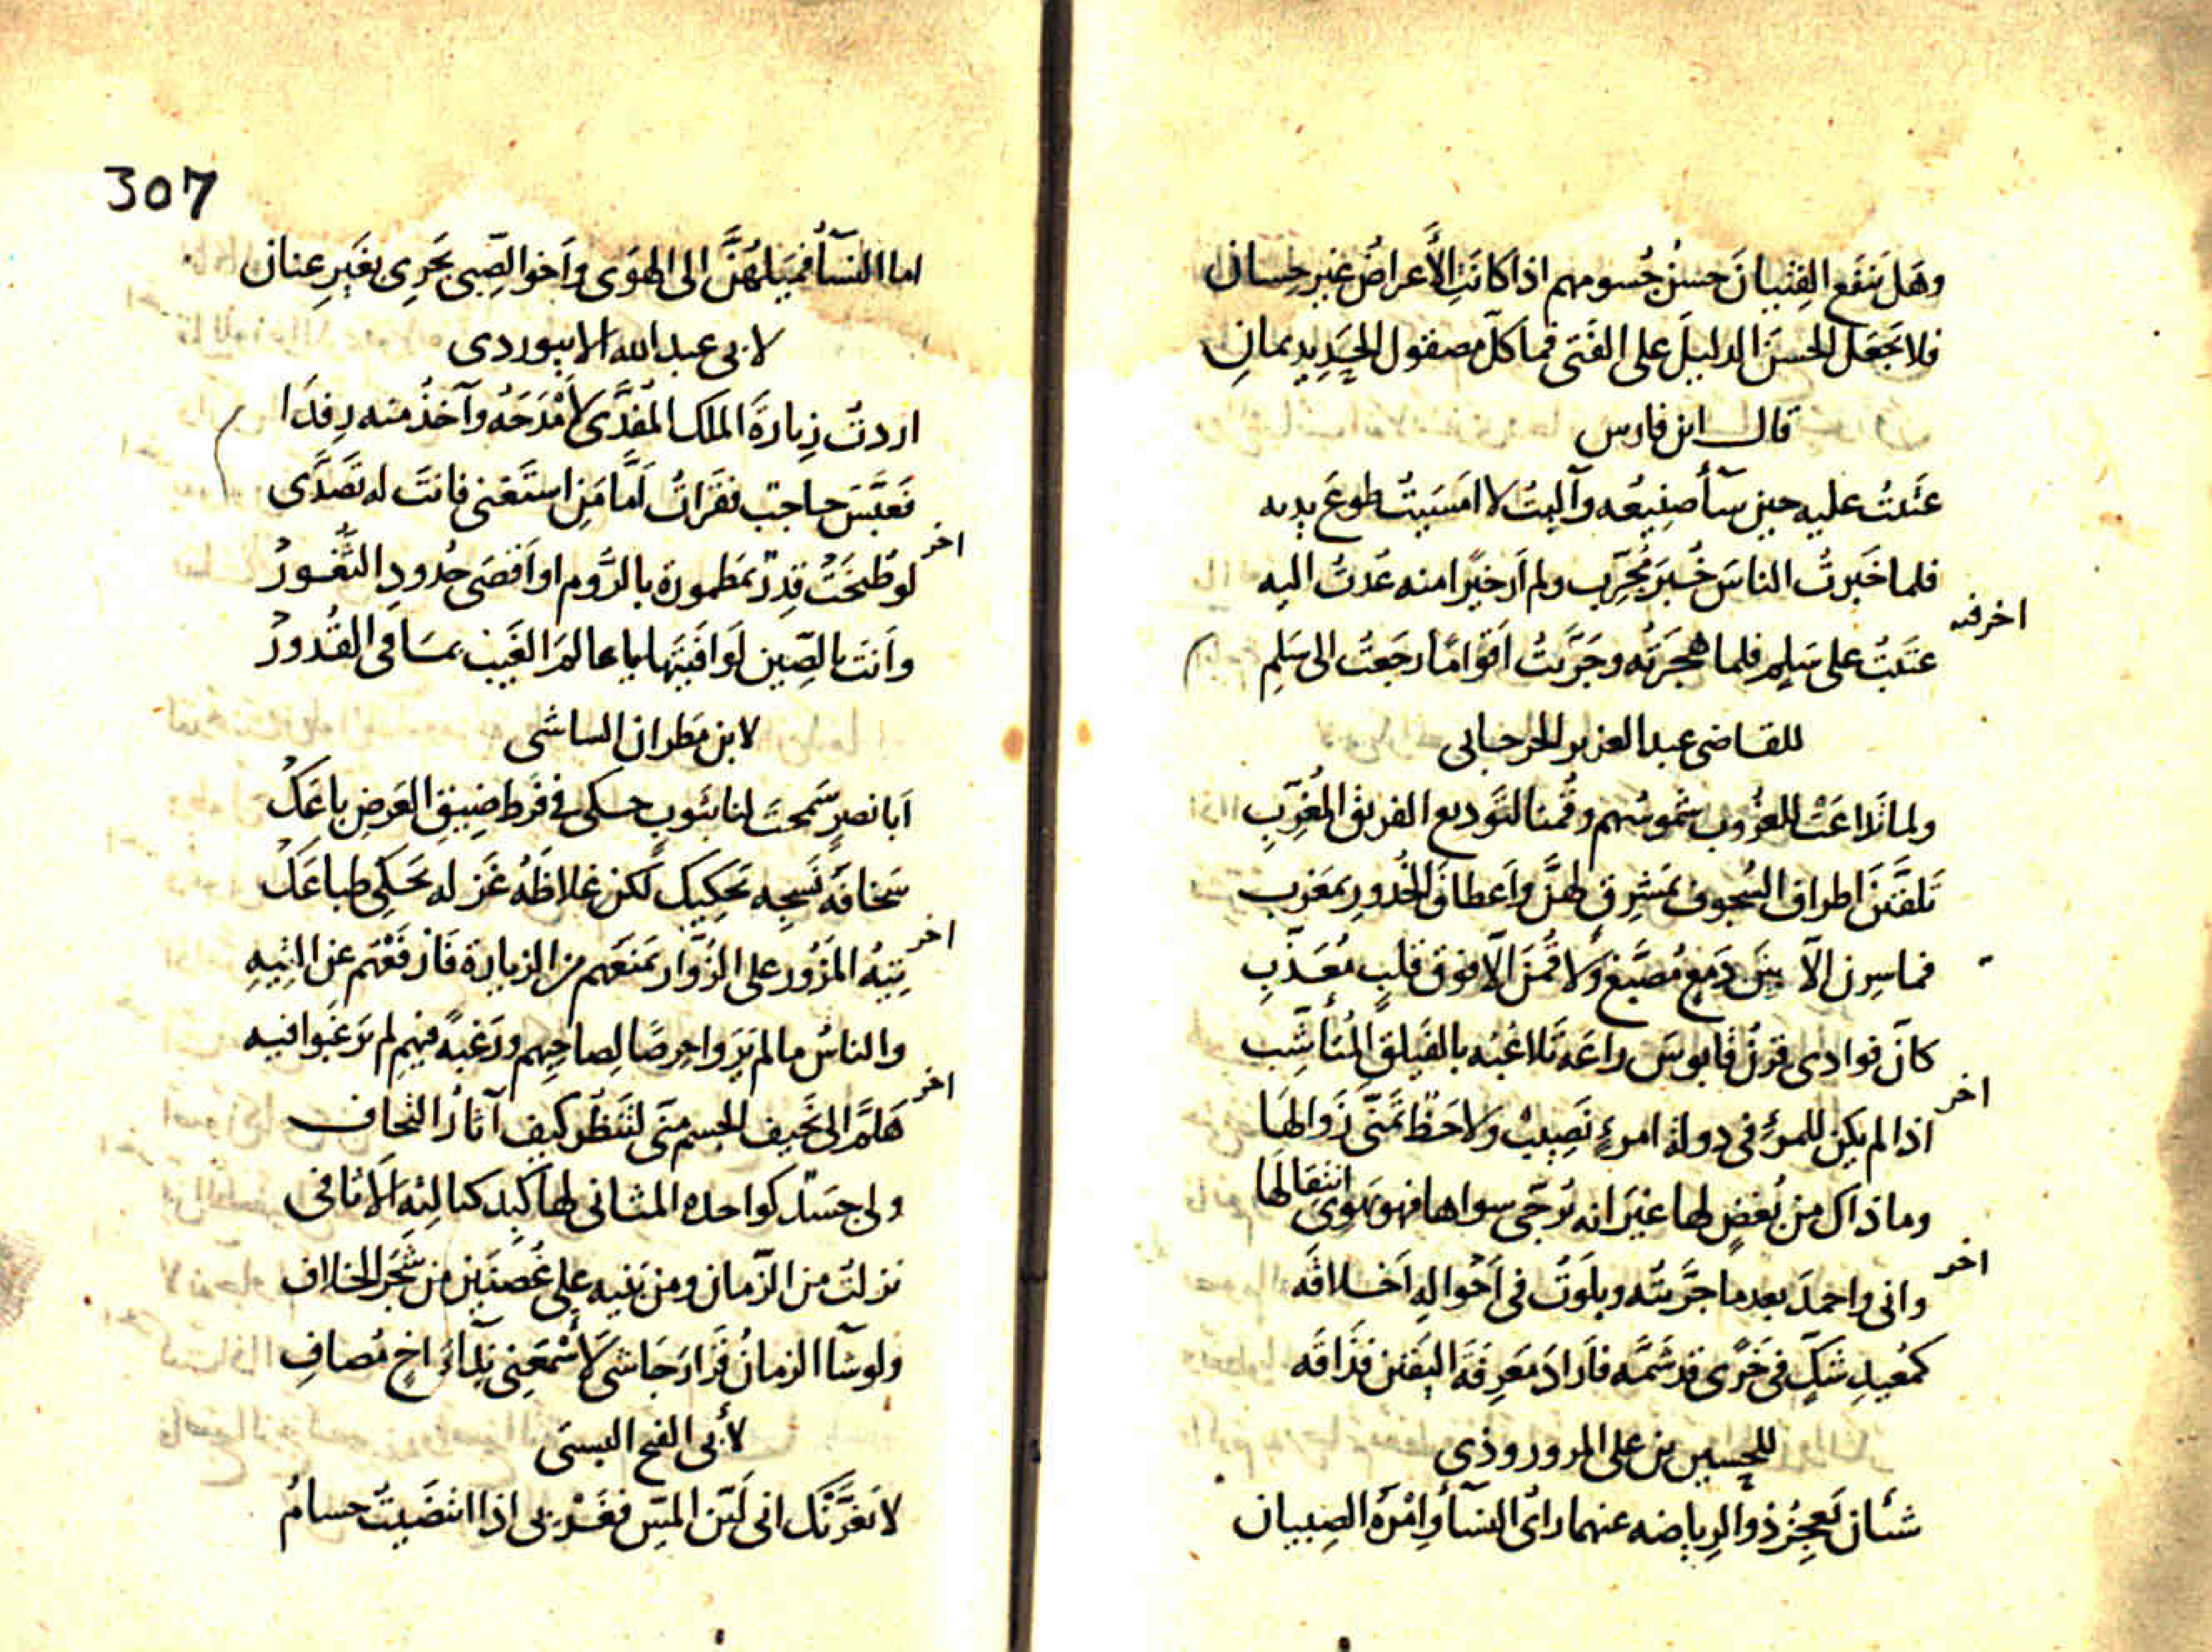 وهَل يَنفَع الفِتيانَ حسنُ جُسومهم اذا كانَتِ الأَعراضُ غير حِسان
فلا تجعَل الحُسنَ الدليلَ على الفَتى فما كلّ مصقول الحَديدِ يمانِ
قال ابن فارس
عتَبتُ عليه حين سآأ صنِيعُه وآليتُ لا امسَيتُ طوعَ يديه
فلما خَبرتُ الناسَ خُبرَ مُجَرِّب ولم اَر خيرًا منه عُدتُ اليه
اخر فيه
عتَبتُ على سَلِم فلما هجَرتُه وجَرَّبتُ اَقوامًا رجَعتُ الى سَلِم
للقاضى عبد العزيز الجرجانى
ولما تَداعَتْ للغُروب شموسُهم وقُمنا لتَوديع الفريق المُغرِّبِ
تَلقَّينَ اطراف السُجوف بمَشرِق لهنَّ واَعطافَ الخُدورِ بمَغرِب
فما سِرن الّا بينَ دَمعٍ مُضيَّعٍ ولا قُمنَ الّا فوق قلبٍ مُعَذّبِ
كاَنّ فوادى قِرنُ قابوسَ راعَه تَلاعُبُه بالفَيلَقِ المُتأَشّب
اخر
اذا لم يكن للمرءِ فى دولة امرءٍ نَصِيبٌ ولا حَظٌ تَمنّى زَوالهَا
وما ذاك من بُغضٍ لها غيرَ انه يُرجّى سِواها فهو يَهوى انتِقالَها
اخر
وانى واحمدَ بعد ما جرَّبتُه وبلَوتُ فى اَحْوالِه اَخلاقَه
كمُعِيدِ شكٍّ فى خَرًى قد شَمَّه فاَرادَ مَعرِفَةَ اليَقين فذَاقَه
للحسين بن على المروروذى
شيئان يَعجِزُ ذو الرِياضه عنهما راْى النسآأ واِمْرَة الصِبيان
307
اما النسآأ فمَيلهُنَّ الى الهوَى واَخو الصِّبى يَجرِى بغَيرِ عنان
لابى عبد الله الابيوردى
اردتُ زِيارَةَ الملَك المُفدَّى لأَمْدَحَهُ وآخُذَ منه رِفدَا
فَعبَّسَ حاجبٌ فقَراتُ اَمَّا مَنِ استَغنى فانتَ له تَصَدَّى
اخر
لو طُبخَتْ قِدرٌ بمَطمورة بالرُّوم او اَقصَى حُدودِ الثُّغورْ
واَنتَ بالصِّين لَوافَيتَها يا عالمَ الغَيب بمَا فى القُدورْ
لابن مَطران الساشى
اَبا نصرٍ سَمحتَ لنا بثوبٍ حكى فى فَرط ضِيقِ العَرض باعَكْ
سَخافَةُ نَسجِه تَحكِيك لكن غلاظَةُ غَزله تَحكِى طباعَكْ
اخر
تِيهُ المَزُورِ على الزُوّار يَمنَعهم من الزيارة فَارفَعْهم عن التِيهِ
والناسُ ما لم يَرَوا حِرصًا لِصاحِبِهم ورَغبَةً فيهِم لم يَرغَبوا فيه
اخر
هَلمَّ الى نَحيف الجسم منّى لتَنظُرَ كيف آثارُ النحاف
ولى جسَدٌ كواحدة المثانى لها كَبِد كثالثِة الاَثافى
نزلتُ من الزّمان ومن بَنيه على غُصنَين من شَجَر الخلاف
ولو شآا الزمانُ قَرارَ جَاشى لأَسْمَعنى نِدآءَ اخٍ مُصافِ
لأبى الفتح البستى
لا يَغرَّنْك انى لَيّن المسّ فغَرْبى اذا انتضَيتُ حسامُ